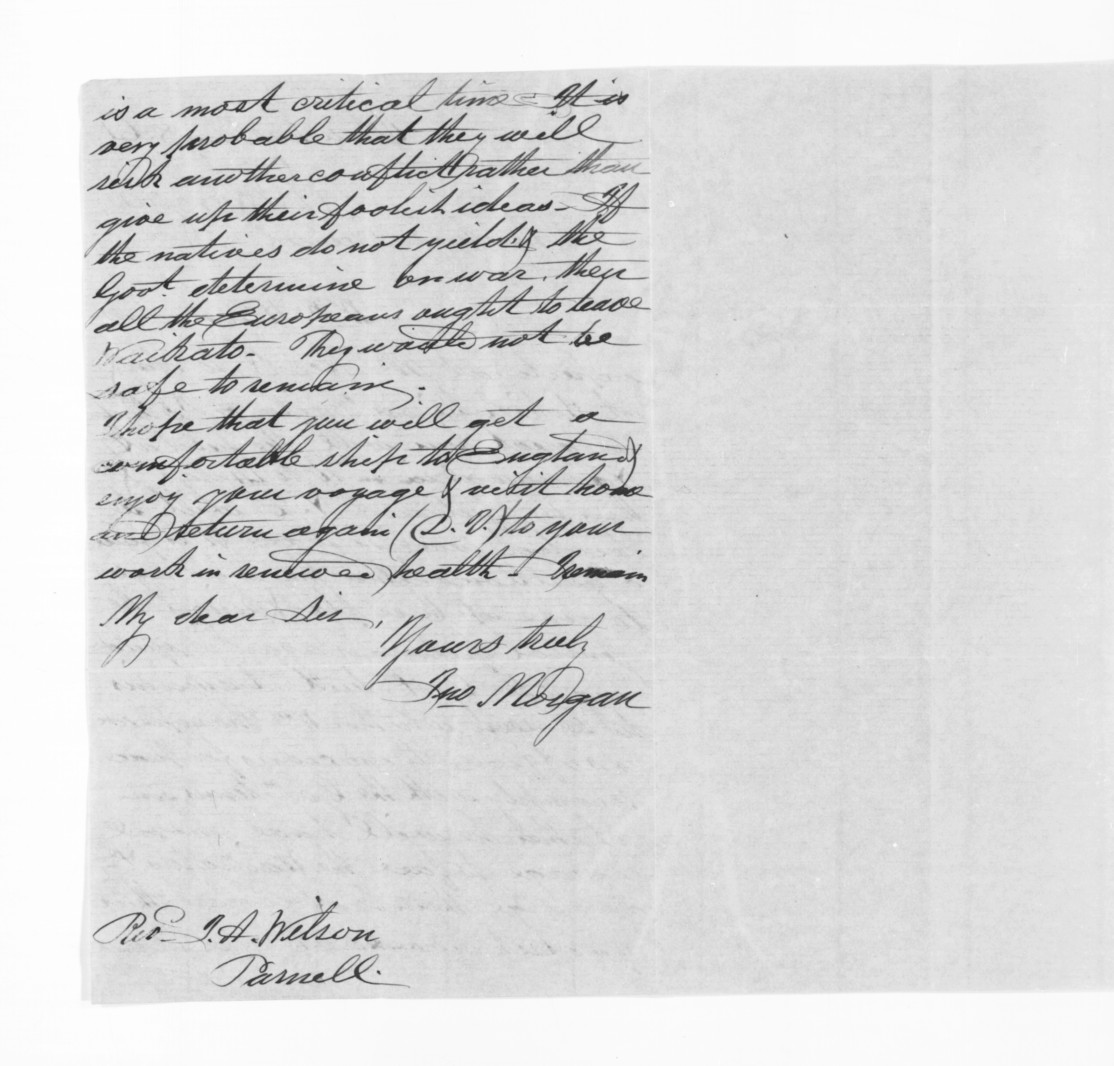 is a most critical time - It is
very probable that they will
risk another conflict rather than
give up their foolish ideas - If
the natives do not yield & the
Govt. determine on war, then
all the Europeans ought to leave
Waikato - They would not be
safe to remain.
I hope that you will get a
comfortable ship to England &
enjoy your voyage & visit home
and return again (D. V.) to your
work in renewed health - I remain
My dear Sir,
Yours truly
Jno Morgan
Revd J. A. Wilson
Parnell.